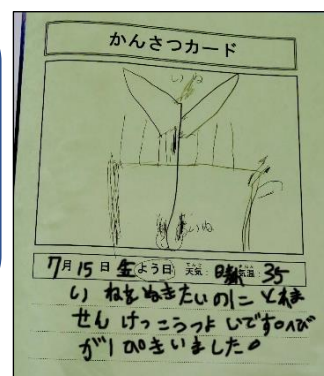 かんさつカード
いね
いね
7月15日金よう日 天気: 晴 気温: 35
いねをぬきたいのにとれま
せんけっこうつよいです。へび
が1ぴきいました。